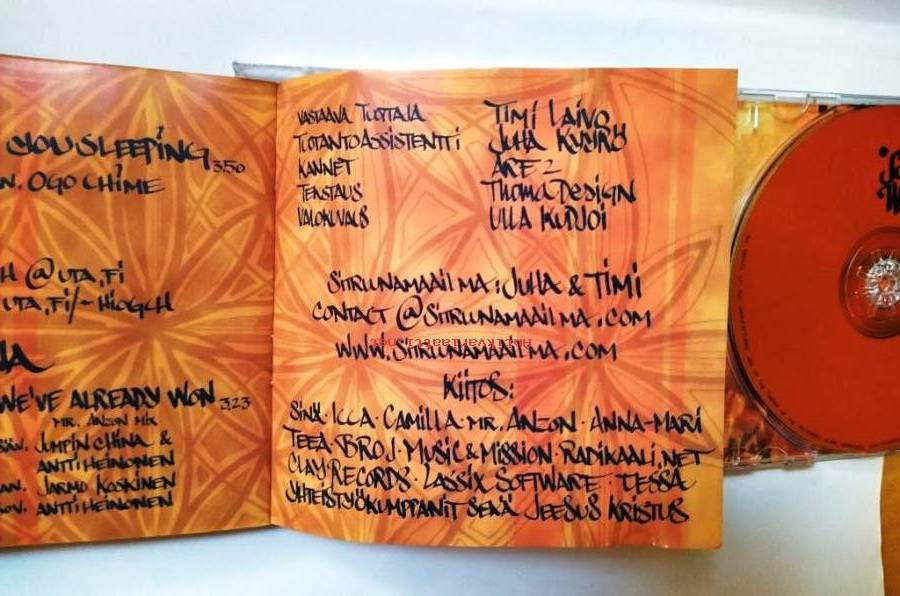 YOU SLEEPING 3:50
N. OGO CHIME
H@UTA.FI
UTA.FI/~HIOGCH
WE'VE ALREADY WON 3:23
MR. ANZON MIX
SÄV. JUMPIN CHINA &
ANTTI HEINONEN
SAN. JARMO KOSKINEN
SOV. ANTTI HEINONEN
VASTAAVA TUOTTAJA TIMI LAIVO
TUOTANTOASSISTENTTI JUHA KYYRÖ
KANNET ARE 2
TEKSTAUS TUOMADESIGN
VALOKUVAUS ULLA KURJOI
SITRUUNAMAAILMA: JUHA & TIMI
CONTACT@SITRUUNAMAAILMA.COM
Antikvariaatti.net
WWW.SITRUUNAMAAILMA.COM
KIITOS:
SINÄ · ILLA · CAMILLA · MR. ANZON · ANNA-MARI
TEEA · BROJ · MUSIC & MISSION · RADIKAALI.NET
CLAY RECORDS · LASSIX SOFTWARE · TESSA
YHTEISTYÖKUMPPANIT SEKÄ JEESUS KRISTUS